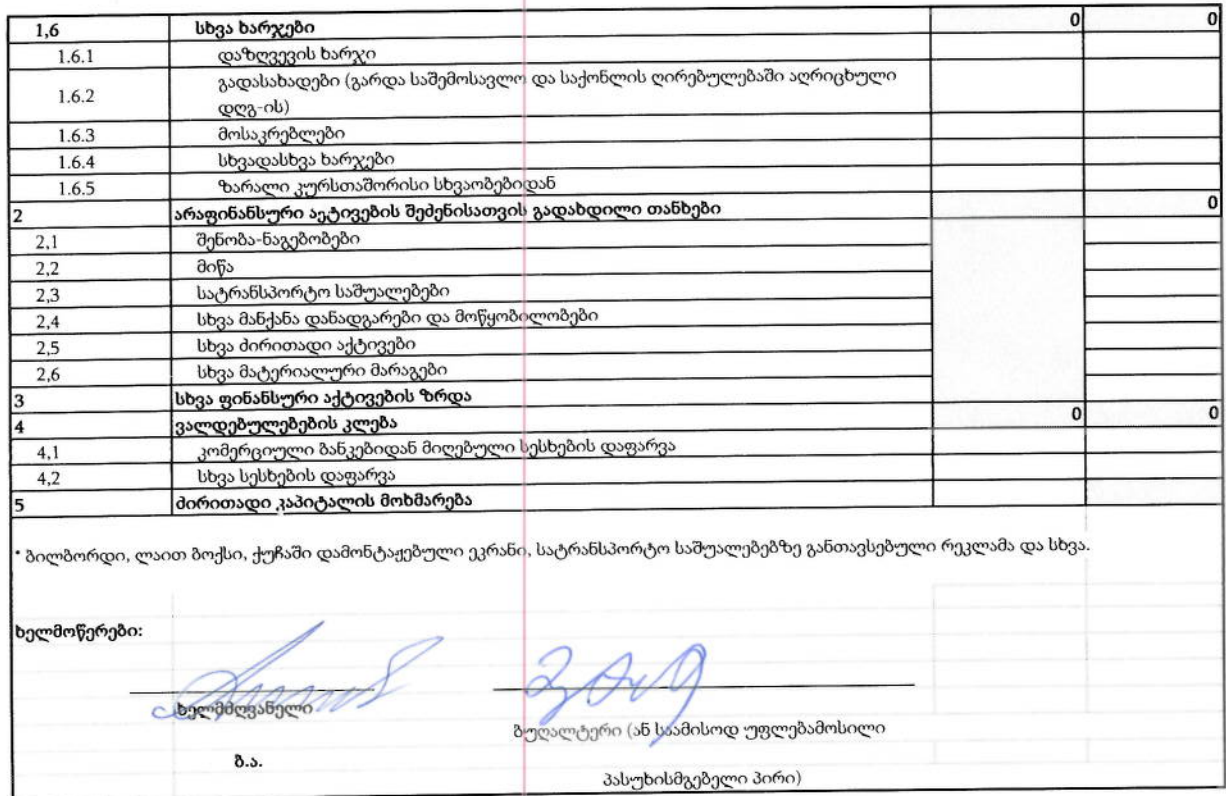 1,6 სხვა ხარჯები 0 0
1.6.1 დაზღვევის ხარჯი
1.6.2 გადასახადები (გარდა საშემოსავლო და საქონლის ღირებულებაში აღრიცხული
დღგ-ის)
1.6.3 მოსაკრებლები
1.6.4 სხვადასხვა ხარჯები
1.6.5 ზარალი კურსთაშორისი სხვაობებიდან
2 არაფინანსური აეტივების შეძენისათვის გადახდილი თანხები 0
2,1 შენობა-ნაგებობები
2,2 მიწა
2,3 სატრანსპორტო საშუალებები
2,4 სხვა მანქანა დანადგარები და მოწყობილობები
2,5 სხვა ძირითადი აქტივები
2,6 სხვა მატერიალური მარაგები
3 სხვა ფინანსური აქტივების ზრდა
4 ვალდებულებების კლება 0 0
4,1 კომერციული ბანკებიდან მიღებული სესხების დაფარვა
4,2 სხვა სესხების დაფარვა
5 ძირითადი კაპიტალის მოხმარება
* ბილბორდი, ლაით ბოქსი, ქუჩაში დამონტაჟებული ეკრანი, სატრანსპორტო საშუალებებზე განთავსებული რეკლამა და სხვა.
ხელმოწერები:
ხელმძღვანელი
ბუღალტერი (ან საამისოდ უფლებამოსილი
ბ.ა.
პასუხისმგებელი პირი)